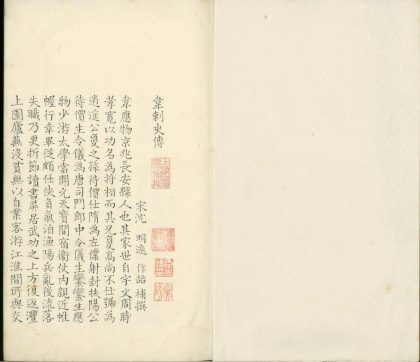 韋刺史傳
宋沈 明遠 作喆 補撰
韋應物京兆長安縣人也其家世自宇文周時
孝寬以功名為將相而其兄敻高尚不仕號為
逍遙公夐之孫待價仕隋為左僕射封扶陽公
待價生令儀為唐司門郎中令儀生鑾鑾生應
物少游太學當開元天寶間宿衛仗內親近帷
幄行幸畢從頗任俠負氣泊漁陽兵亂後流落
失職乃更折節讀書屏居武功之上方復返灃
上園廬蕪沒貧無以自業客游江淮間所與交